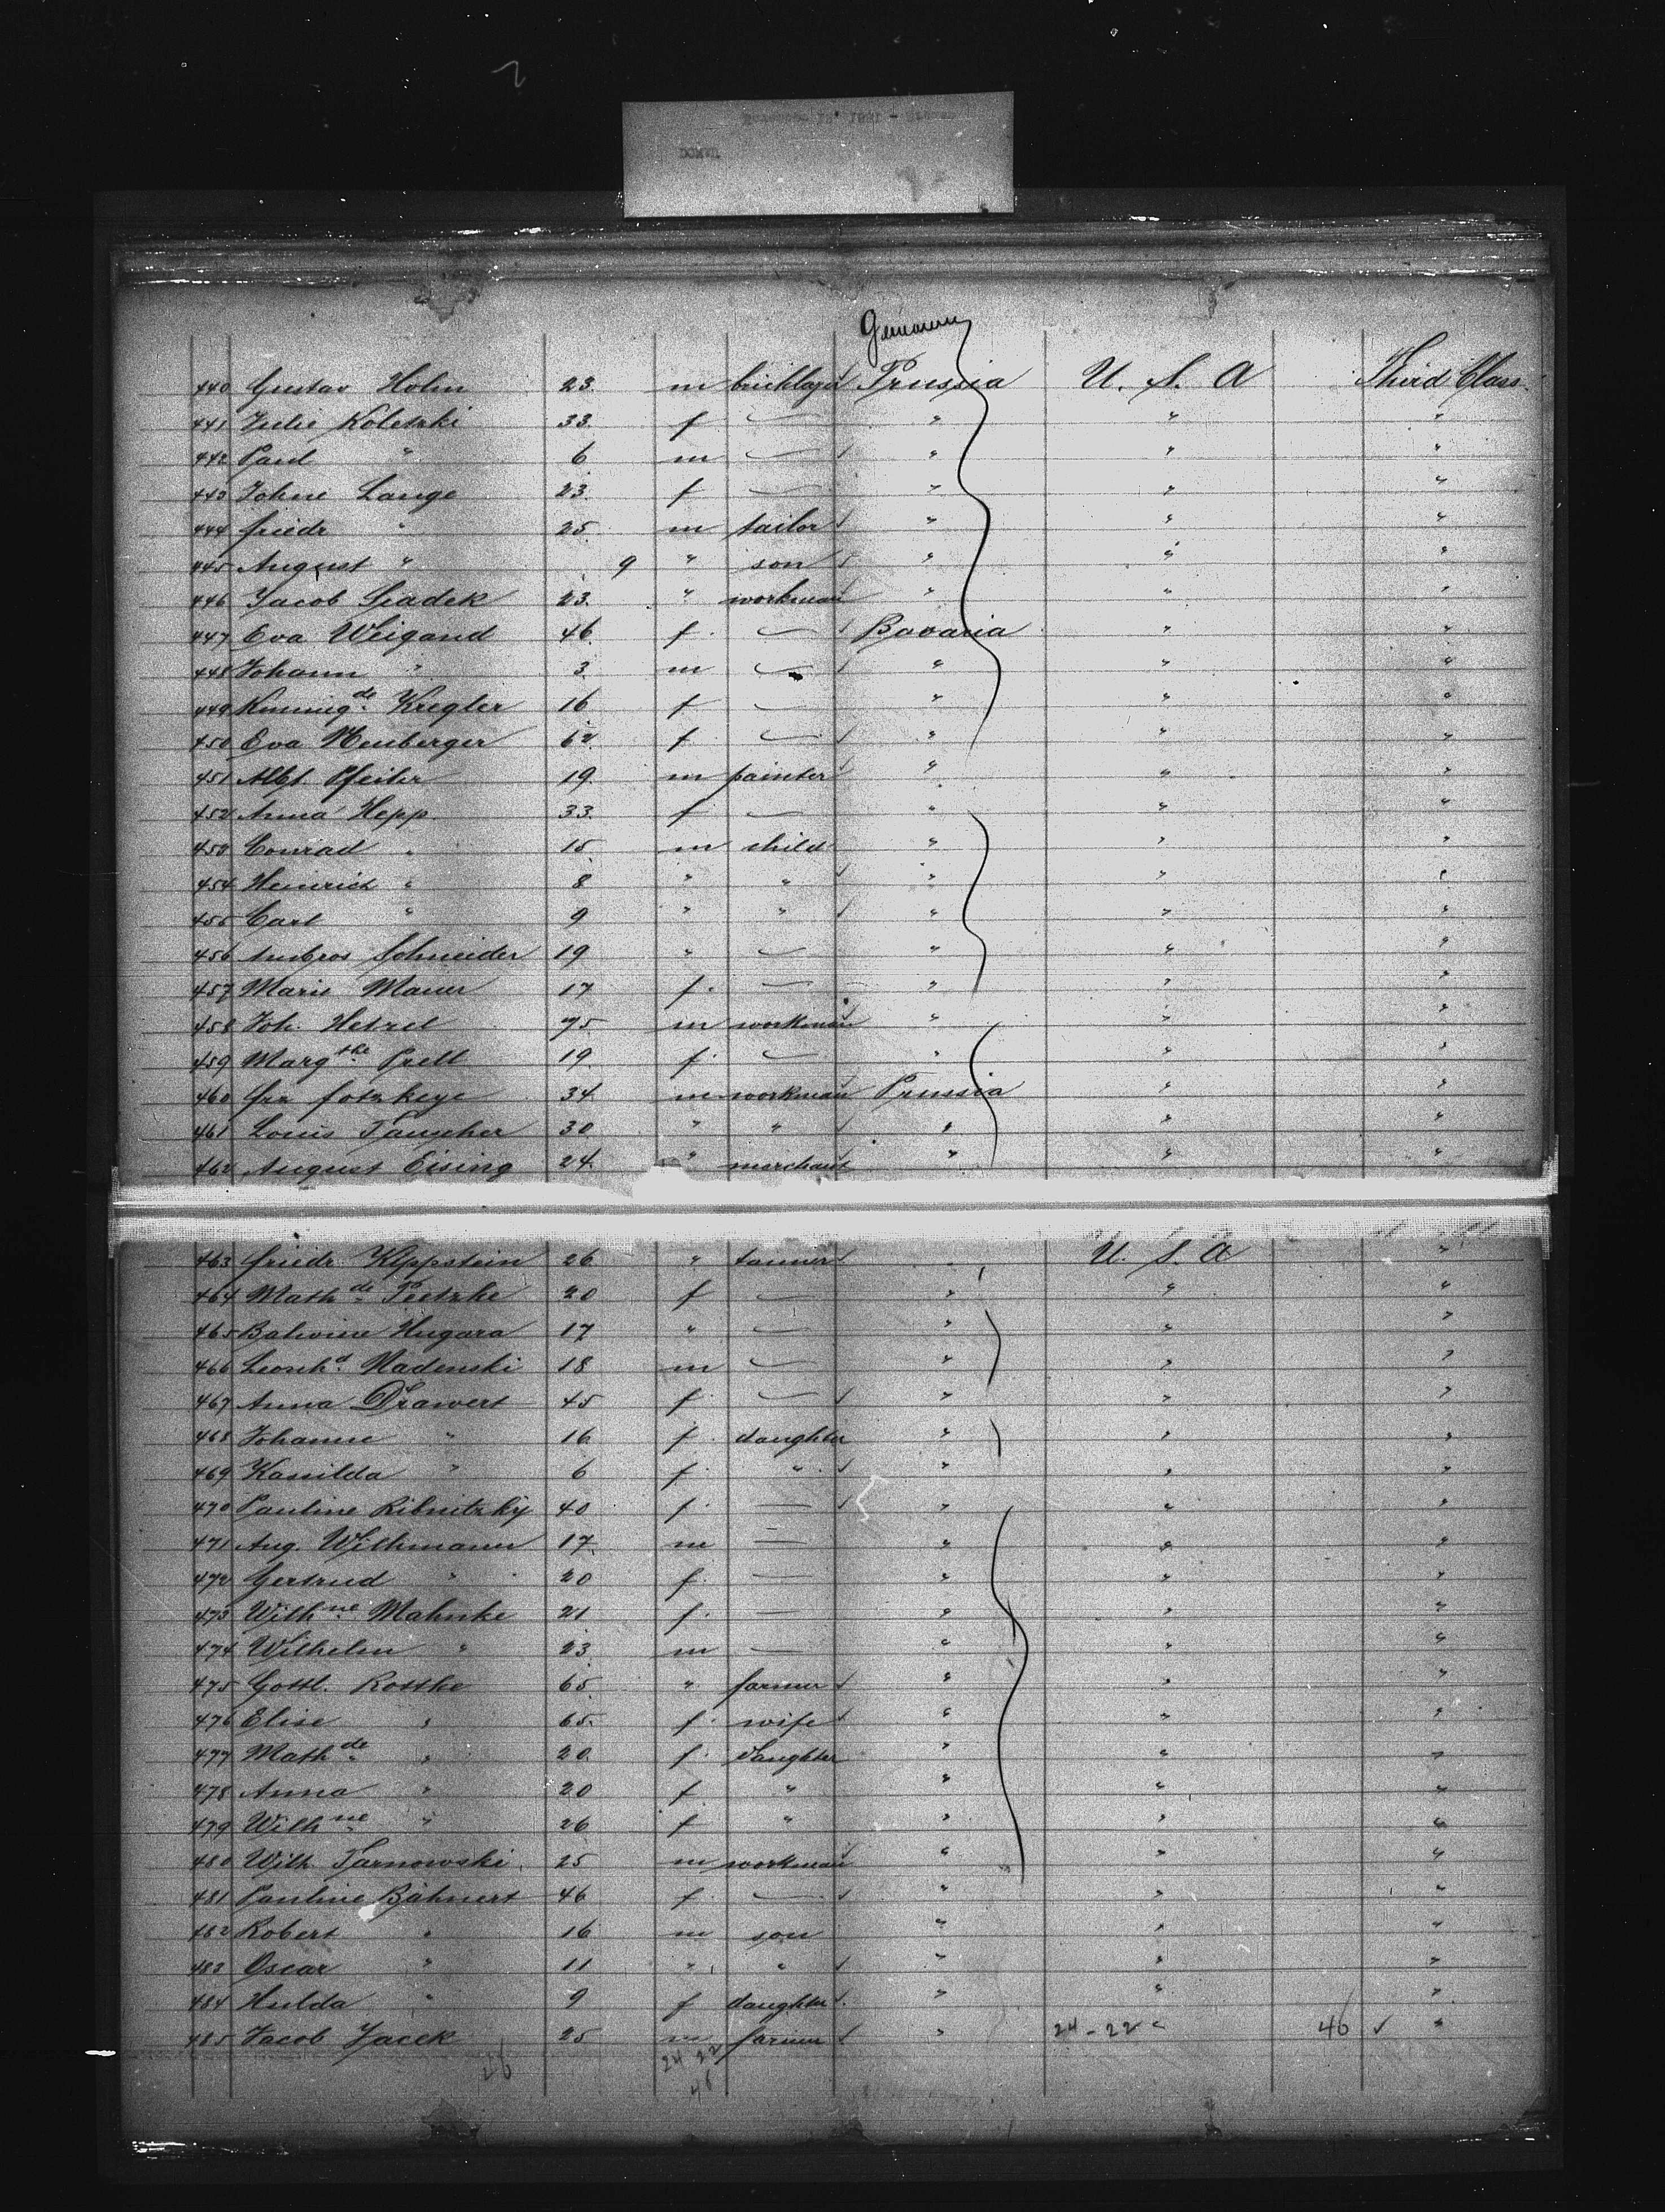 Germany
440 Gustav Holm 23. m bricklayer Prussia U. S. A Third Class.
441 Julie Koletzki 33. f — " " "
442 Paul " 6 m — " " "
443 Johne Lange 23. f — " " "
444 friedr " 25 m tailor " " "
445 August " 9 " son " " "
446 Jacob Siadek 23. " workman " " "
447 Eva Weigand 46. f. — Bavaria " "
448 Johann " 3. m — " " "
449 Kunnigde Kregler 16 f — " " "
450 Eva Neuberger 62 f. — " " "
451 Albt. Pfeifer 19. m painter " " "
452 Anna Hepp 33. f — " " "
453 Conrad " 15 m child " " "
454 Heinrich " 8 " " " " "
455 Carl " 9 " " " " "
456 Ambros Schneider 19 " — " " "
457 Marie Mauer 17 f. — " " "
458 Joh. Hetzel 75 m workman " " "
459 Margthe Prell 19. f. — " " "
460 frz fotzkeye 34. m workman Prussia " "
461 Louis Tauscher 30 " " " " "
462 August Eising 24. " merchant " " "
463 friedr. Kleppstein 26 " tanner " U. S. A "
464 Mathde Pietzke 20 f — " " "
465 Balwine Hugara 17 " — " " "
466 Leonhd. Nadenski 18 m — " " "
467 Anna Drawert 45 f. — " " "
468 Johanne " 16 f. daughter " " "
469 Kasilda " 6 f. " " " "
470 Pauline Ribnitzky 40 f. — " " "
471 Aug. Wilhmann 17. m — " " "
472 Gertrud " 20 f. — " " "
473 Wilhne Mahnke 21 f. — " " "
474 Wilhelm " 23 m — " " "
475 Gottl. Rottke 65. " farmer " " "
476 Elise " 65. f. wife " " "
477 Mathde " 20. f. daughter " " "
478 Anna " 20 f. " " " "
479 Wilhne " 26 f " " " "
480 Wilh. Tarnowski 25 m workman " " "
481 Pauline Bähnert 46 f. — " " "
482 Robert " 16 m son " " "
483 Oscar " 11 " " " " "
484 Hulda " 9 f daughter " " "
485 Jacob Jacek 25 m farmer " 24-22 46 "
46 24 22
46